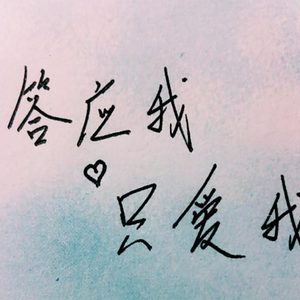 答应我
只爱我